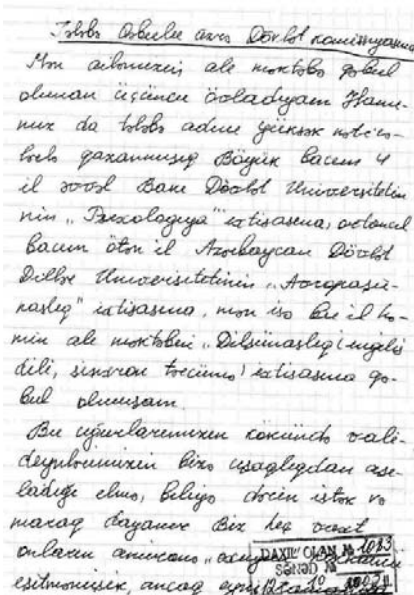 Tələbə Qəbulu üzrə Dövlət Komissiyasına
Mən ailəmizin ali məktəbə qəbul
olunan üçüncü övladıyam. Hamı-
mız da tələbə adını yüksək nəticə-
lərlə qazanmışıq. Böyük bacım 4
il əvvəl Bakı Dövlət Universiteti-
nin "Psixologiya" ixtisasına, ortancıl
bacım ötən il Azərbaycan Dövlət
Dillər Universitetinin "Avropaşü-
naslıq" ixtisasına, mən isə bu il hə-
min ali məktəbin "Dilşünaslıq (ingilis
dili, sinxron tərcümə) ixtisasına qə-
bul olmuşam.
Bu uğurlarımızın kökündə vali-
deynlərimizin bizə uşaqlıqdan aşı-
ladığı elmə, biliyə dərin istək və
maraq dayanır. Biz heç vaxt
onların
eşitməmişik, ancaq
DAXİL OLAN № 1083
SƏNƏD №